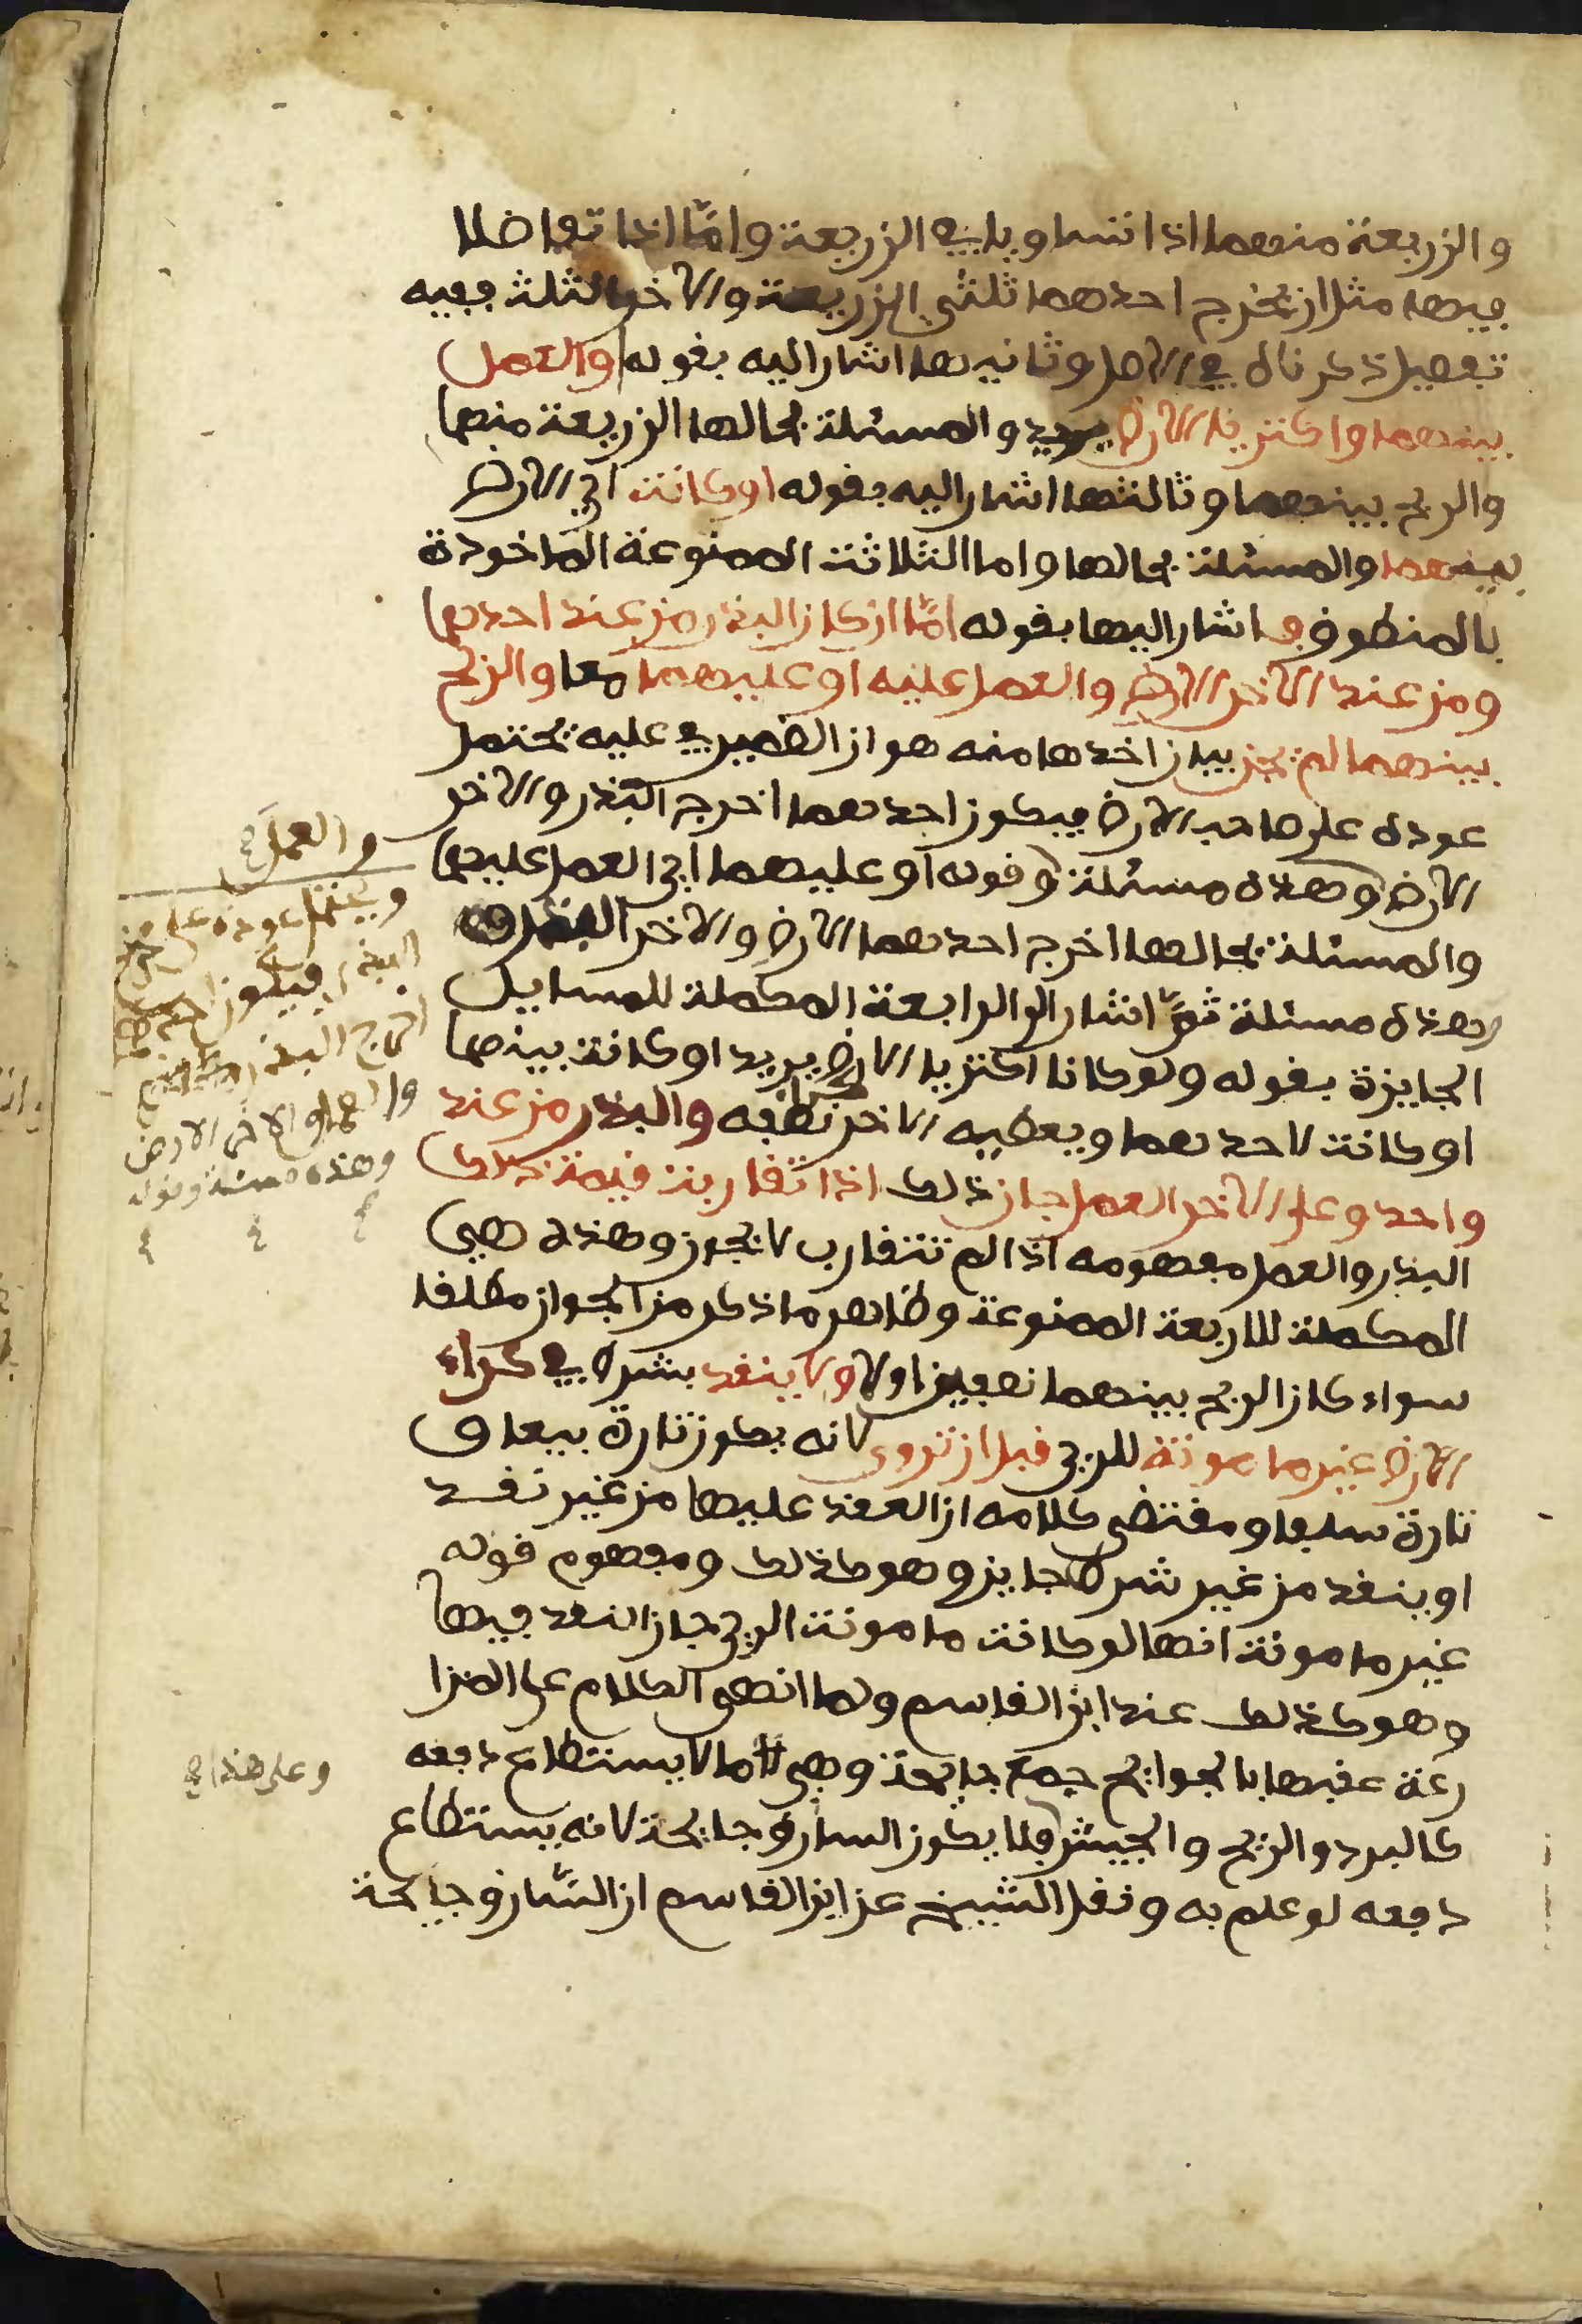 والزريعة منهما اذا تساويا في الزريعة وامّا اذا تفاضلا
فيها مثل ان يخرج احدهما ثلثي الزريعة والاخر الثلث ففيه
تفصيل ذكرناه في الاصل وثانيها اشار اليه بقوله والعمل
بينهما واكتريا الارض يريد والمسئلة بحالها الزريعة منهما
والربح بينهما وثالثها اشار اليه بقوله او كانت اي الارض
بينهما والمسئلة بحالها واما الثلاثة الممنوعة الماخوذة
بالمنطوق فاشار اليها بقوله امّا ان كان البذر من عند احدهما
ومن عند الاخر الارض والعمل عليه او عليهما معا والربح
بينهما لم يجز بيان اخذها منه هو ان الضمير في عليه يحتمل
عوده على صاحب الارض فيكون احدهما اخرج البذر والاخر
الارض وهذه مسئلة وقوله او عليهما اي العمل عليهما
والمسئلة بحالها اخرج احدهما الارض والاخر البذر
وهذه مسئلة ثمّ اشار الى الرابعة المكملة للمسايل
الجايزة بقوله ولو كانا اكتريا الارض يريد او كانت بينهما
او كانت لاحدهما ويعطيه الاخر نصفه والبذر من عند
واحد وعلى الاخر العمل جاز ذلك اذا تقاربت قيمة ذلك
البذر والعمل مفهومه اذا لم تتقارب لا يجوز وهذه هي
المكملة للاربعة الممنوعة وظاهر ما ذكر من الجواز مطلقا
سواء كان الربح بينهما نصفين او لا ولا ينقد بشرط في كراء
الارض غير مامونة للري قبل ان تروى لانه يكون تارة بيعا و
تارة سلفا ومقتضى كلامه ان العقد عليها من غير نقد
او بنقد من غير شرط جايز وهو كذلك ومفهوم قوله
غير مامونة انها لو كانت مامونة الري جاز النقد فيها
وهو كذلك عند ابن القاسم ولما انهى الكلام على المزا
رعة عقبها بالجوايح جمع جايحة وهي ما لا يستطاع دفعه
كالبرد والريح والجيش فلا يكون السارق جايحة لانه يستطاع
دفعه لو علم به ونقل الشيخ عن ابن القاسم ان السّارق جايحة
والعمل
ويحتمل عوده على من
البذر فيكون احدهما
اخرج البذر
والعمل والاخر الارض
وهذه مسئلة وقوله
وعلى هذا